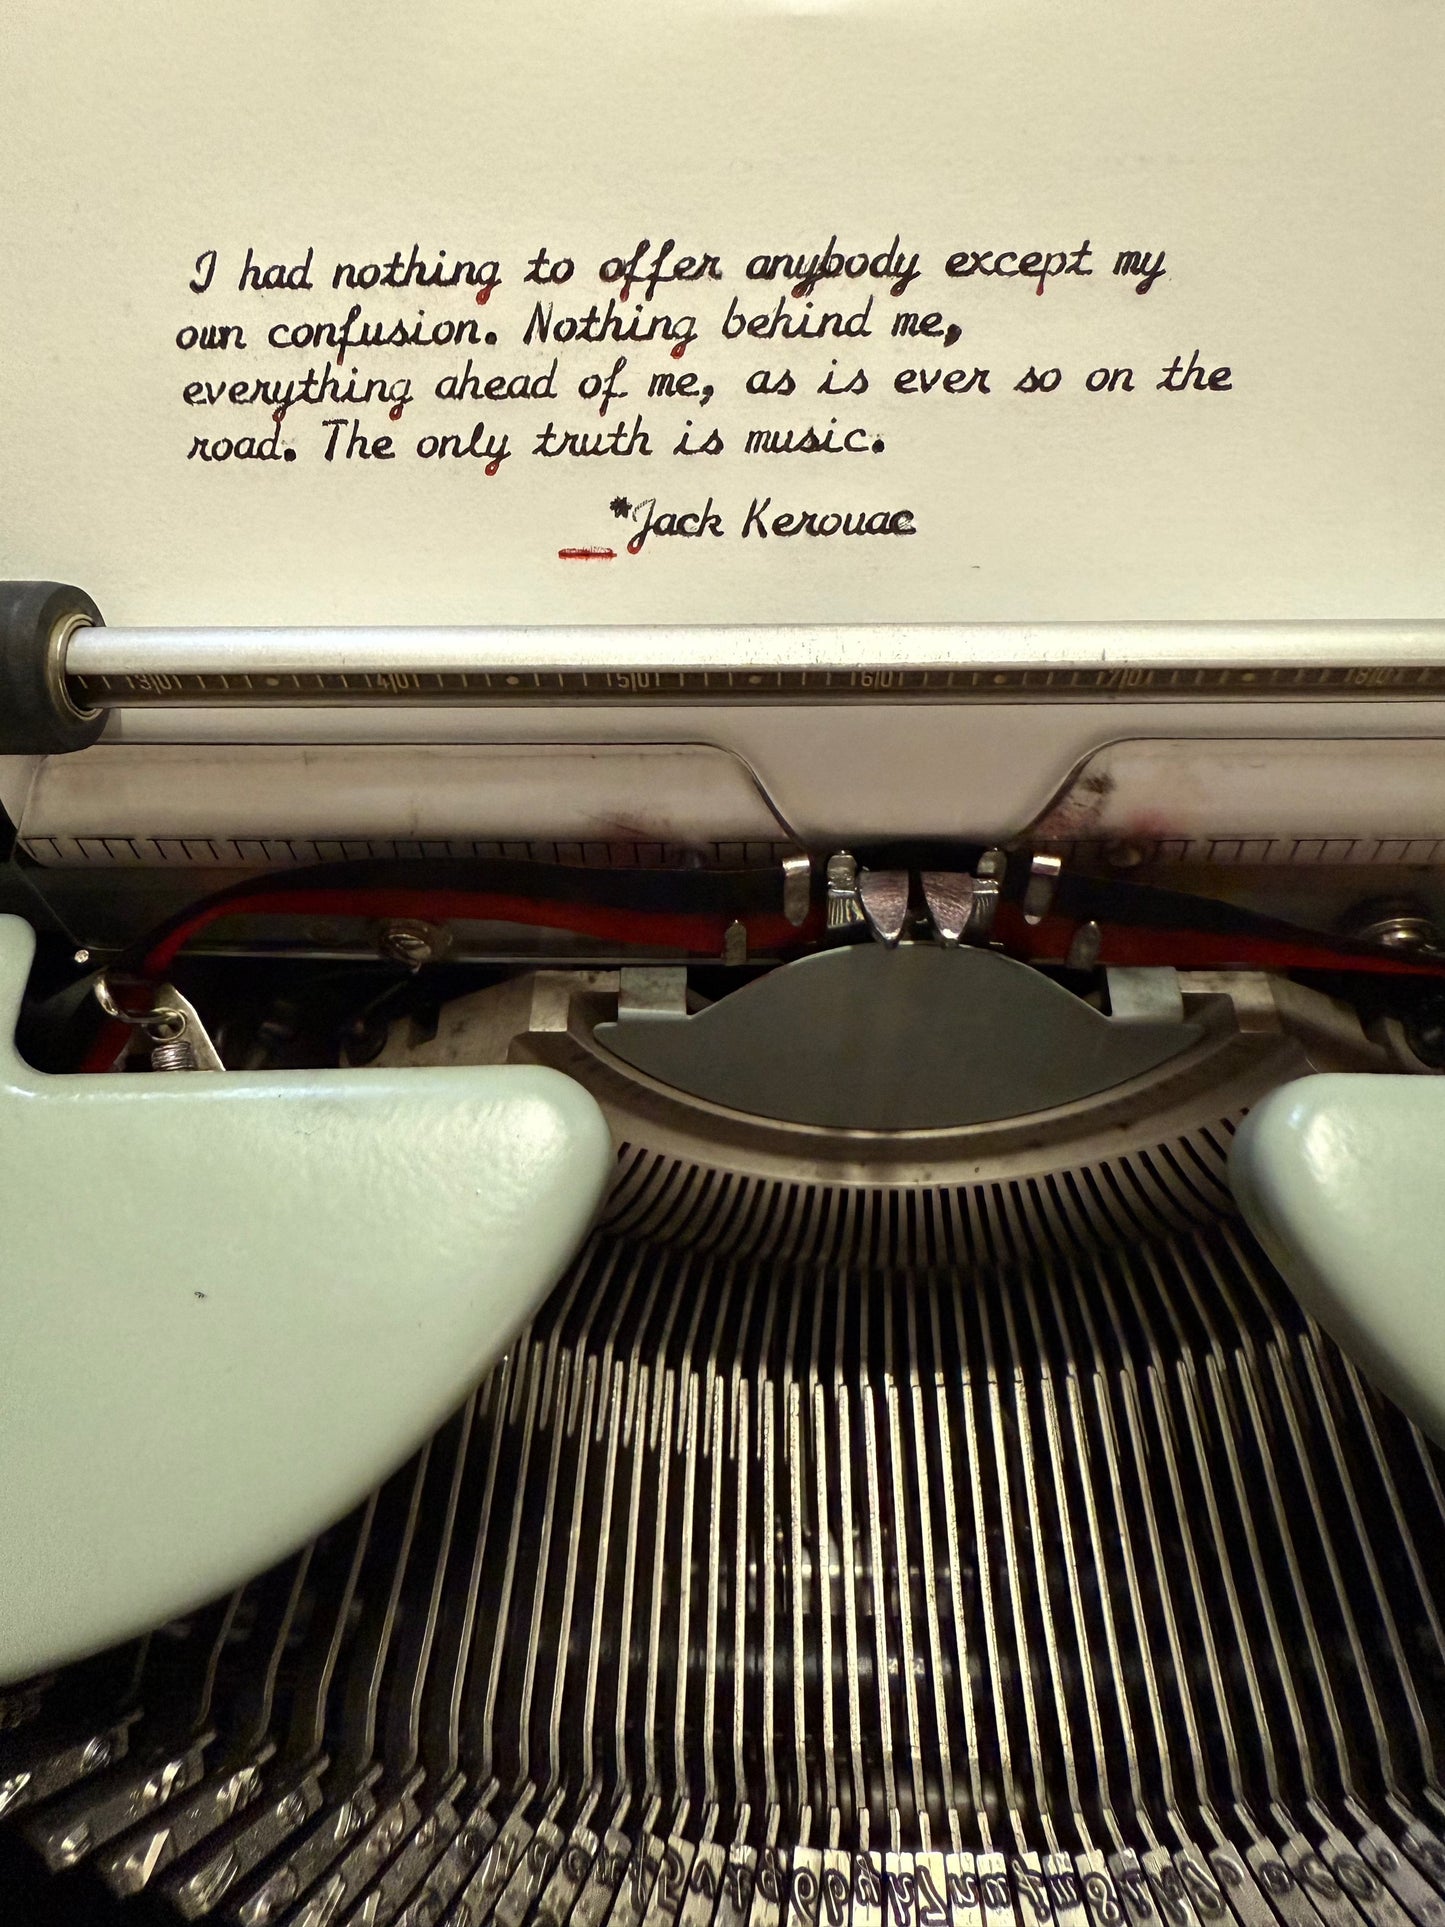 I had nothing to offer anybody except my
own confusion. Nothing behind me,
everything ahead of me, as is ever so on the
road. The only truth is music.
*Jack Kerouac